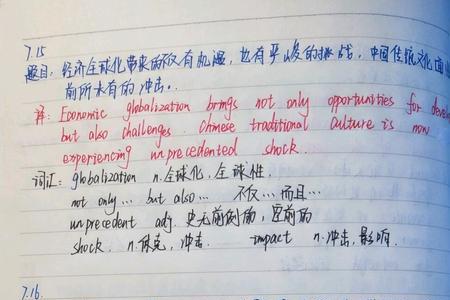 7.15
题目：经济全球化带来的不仅有机遇，也有严峻的挑战，中国传统文化面
前所未有的冲击。
译：Economic globalization brings not only opportunities for devel
but also challenges. Chinese traditional culture is now
experiencing unprecedented shock.
词汇：globalization n.全球化，全球性.
not only... but also... 不仅…而且…
unprecedent adj. 史无前例的，空前的
shock. n.休克，冲击. impact n.冲击，影响.
7.16.